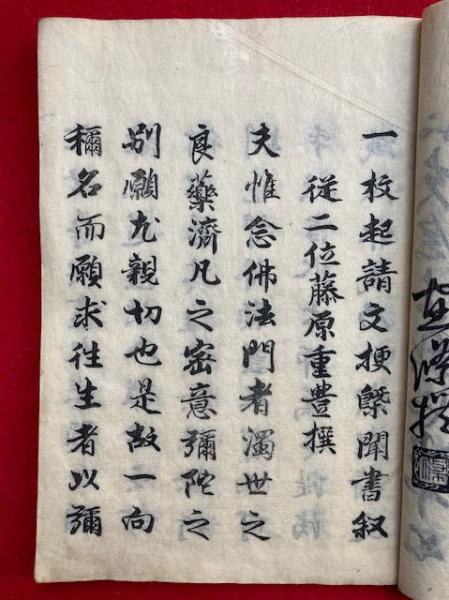 一枚起請文梗槩聞書叙
従二位藤原重豊撰
夫惟念佛法門者濁世之
良藥濟凡之密意彌陀之
別願尤親切也是故一向
稱名而願求往生者以彌